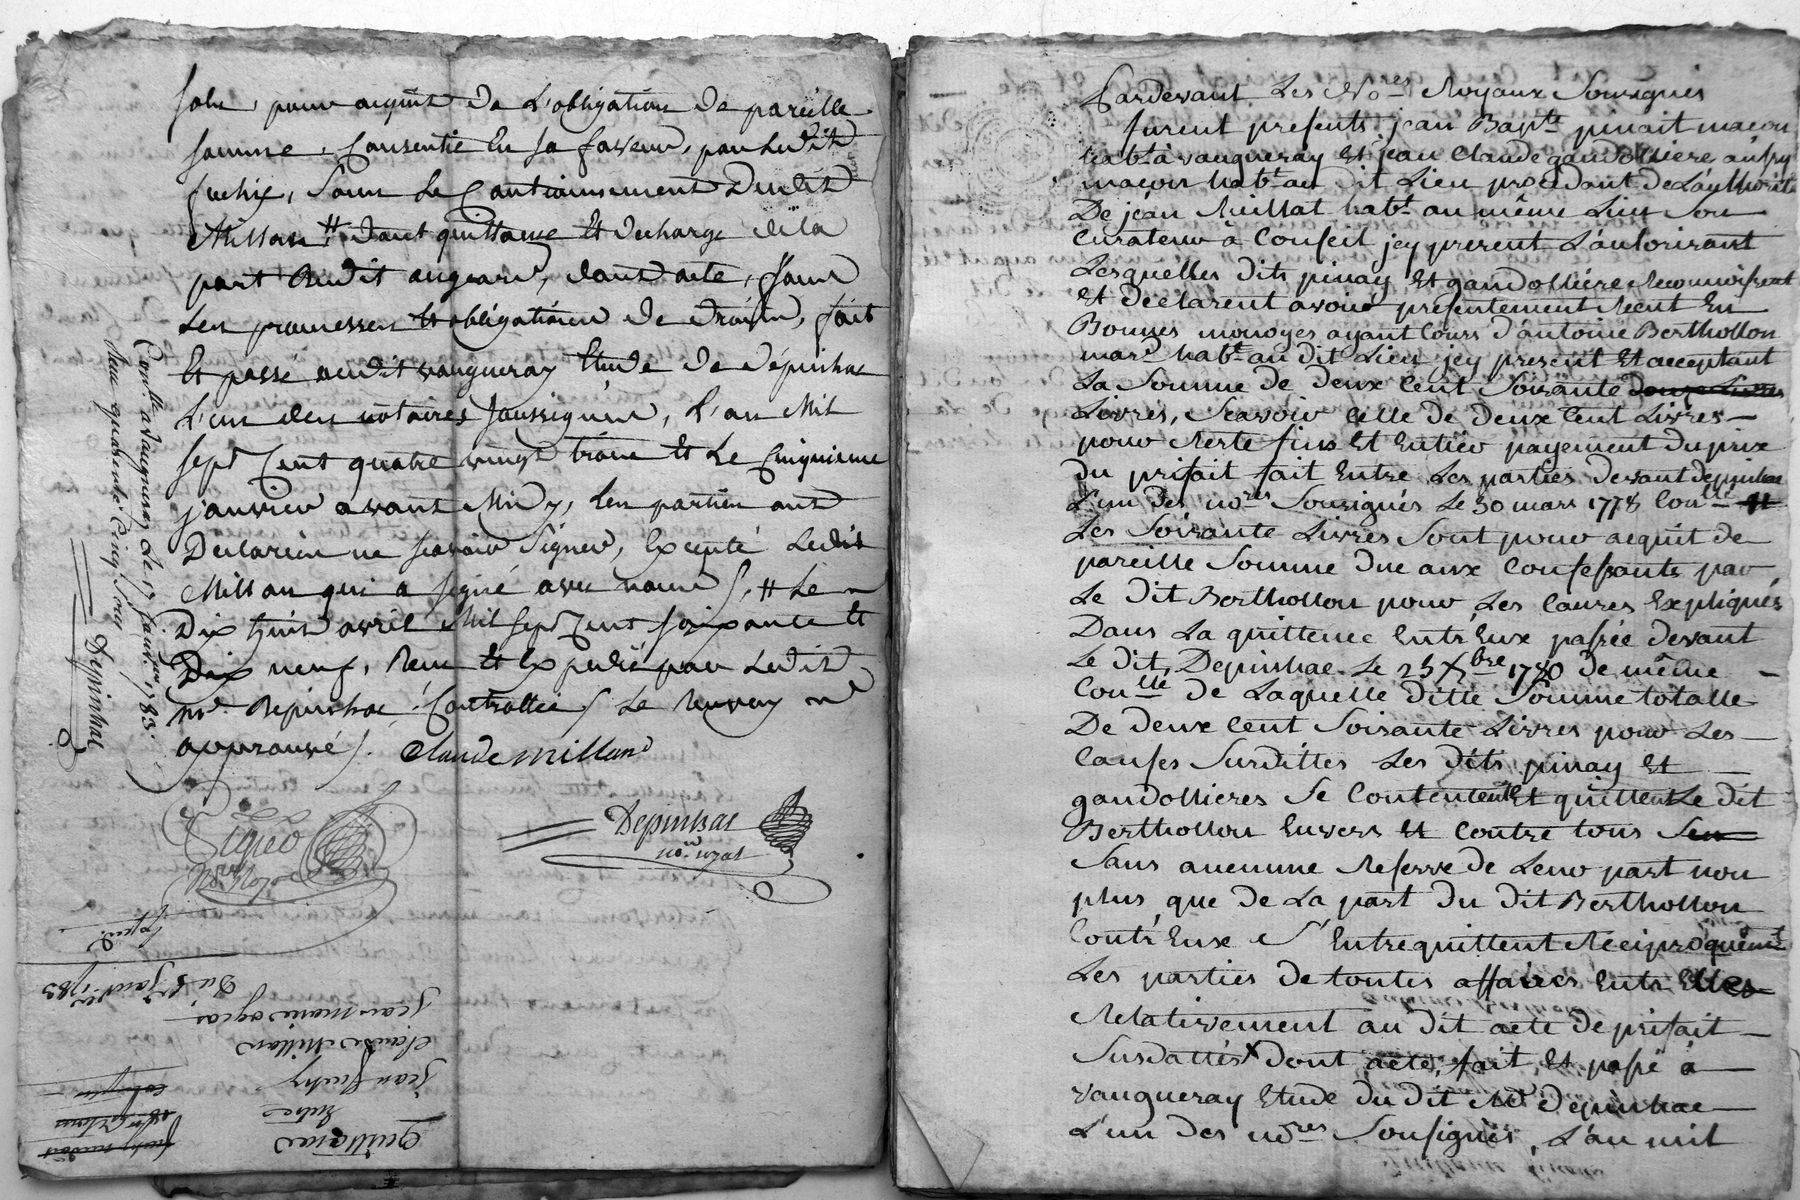 pour acquit de L'obligation de pareille
somme, Consentie En sa faveur, par Ledit
sous Le Cautionnement Dudit
Millan # dont quittance Et decharge de la
part dudit dont acte, sous
Les promesses Et obligations de droits, fait
Et passé audit vaugneray Etude de Dépinhac
L'un des notaires soussignés, L'an Mil
sept Cent quatre vingt trois Et Le Cinquieme
janvier avant Midy, Les parties ont
Declarées ne scavoir Signer, Excepté Ledit
Millan qui a signé avec nous /. # Le
Dix huit avril Mil sept Cent soixante Et
Dix neuf, Recu Et Expedié par Ledit
me. Depinhac Controllée / Le Renvoy
approuvé /. Claude Milland
Conllé a vaugneray Le 17 janvr 1783.
Recu quarente Cinq sous
Depinhac
Depinhac
nore royal
Expedié
Du 5 janvr 1783
Jean
Claude Millan
Jean
Entre
Quittance
Pardevant Les Nores Royaux Sousignés
furent presents jean Bapte pinait macon
habt à vaugneray Et jean Claude gandolliere aussy
macon habt au dit Lieu procedant de L'authorité
De jean Reillat habt au même Lieu Son
Curateur à Conseil jcy present L'autorisant
Lesquelles dits pinay Et gandolliere Reconnoissent
Et declarent avoir presentement Recut En
Bonnes monoyes ayant Cours d'antoine Berthollon
mard habt au dit Lieu jcy present Et acceptant
La Somme de deux Cent Soixante douze Livres
Livres, Scavoir Celle de deux Cent Livres
pour Reste fins Et Entier payement du prix
du prifait fait Entre Les parties devant depinhac
L'un des nores Sousignés Le 30 mars 1778 Conllé
Les Soixante Livres Sont pour acquit de
pareille Somme due aux Confessants par
Le dit Berthollon pour Les Causes Expliqués
Dans La quittence Entr'Eux passée devant
Le dit, Depinhac Le 23 Xbre 1780 de même
Conllé de Laquelle ditte Somme totalle
De deux Cent Soixante Livres pour Les
Causes Surdittes Les dits pinay Et
gandollieres Se Contentent Et quittent Le dit
Berthollon Envers Et Contre tous
Sans aucunne Reserve de Leur part non
plus que de La part du dit Berthollon
Contr'Eux S'Entrequittent Reciproquemt
Les parties de toutes affaires Entr Elles
Relativement au dit acte de prifait
Susdattés x dont acte, fait Et passé à
vaugneray Etude du dit Me depinhac
L'un des nores Sousignés, L'an mil